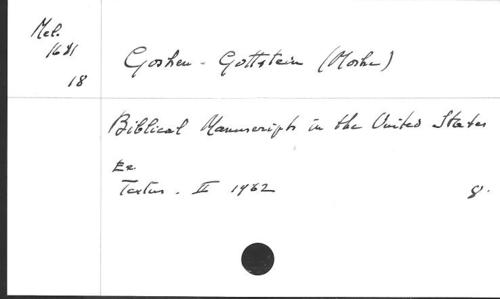 Mel.
1681
18
Goshen - Gottstein (Moshe)
Biblical Manuscripts in the United States
Ex
Textus. II 1962 8.